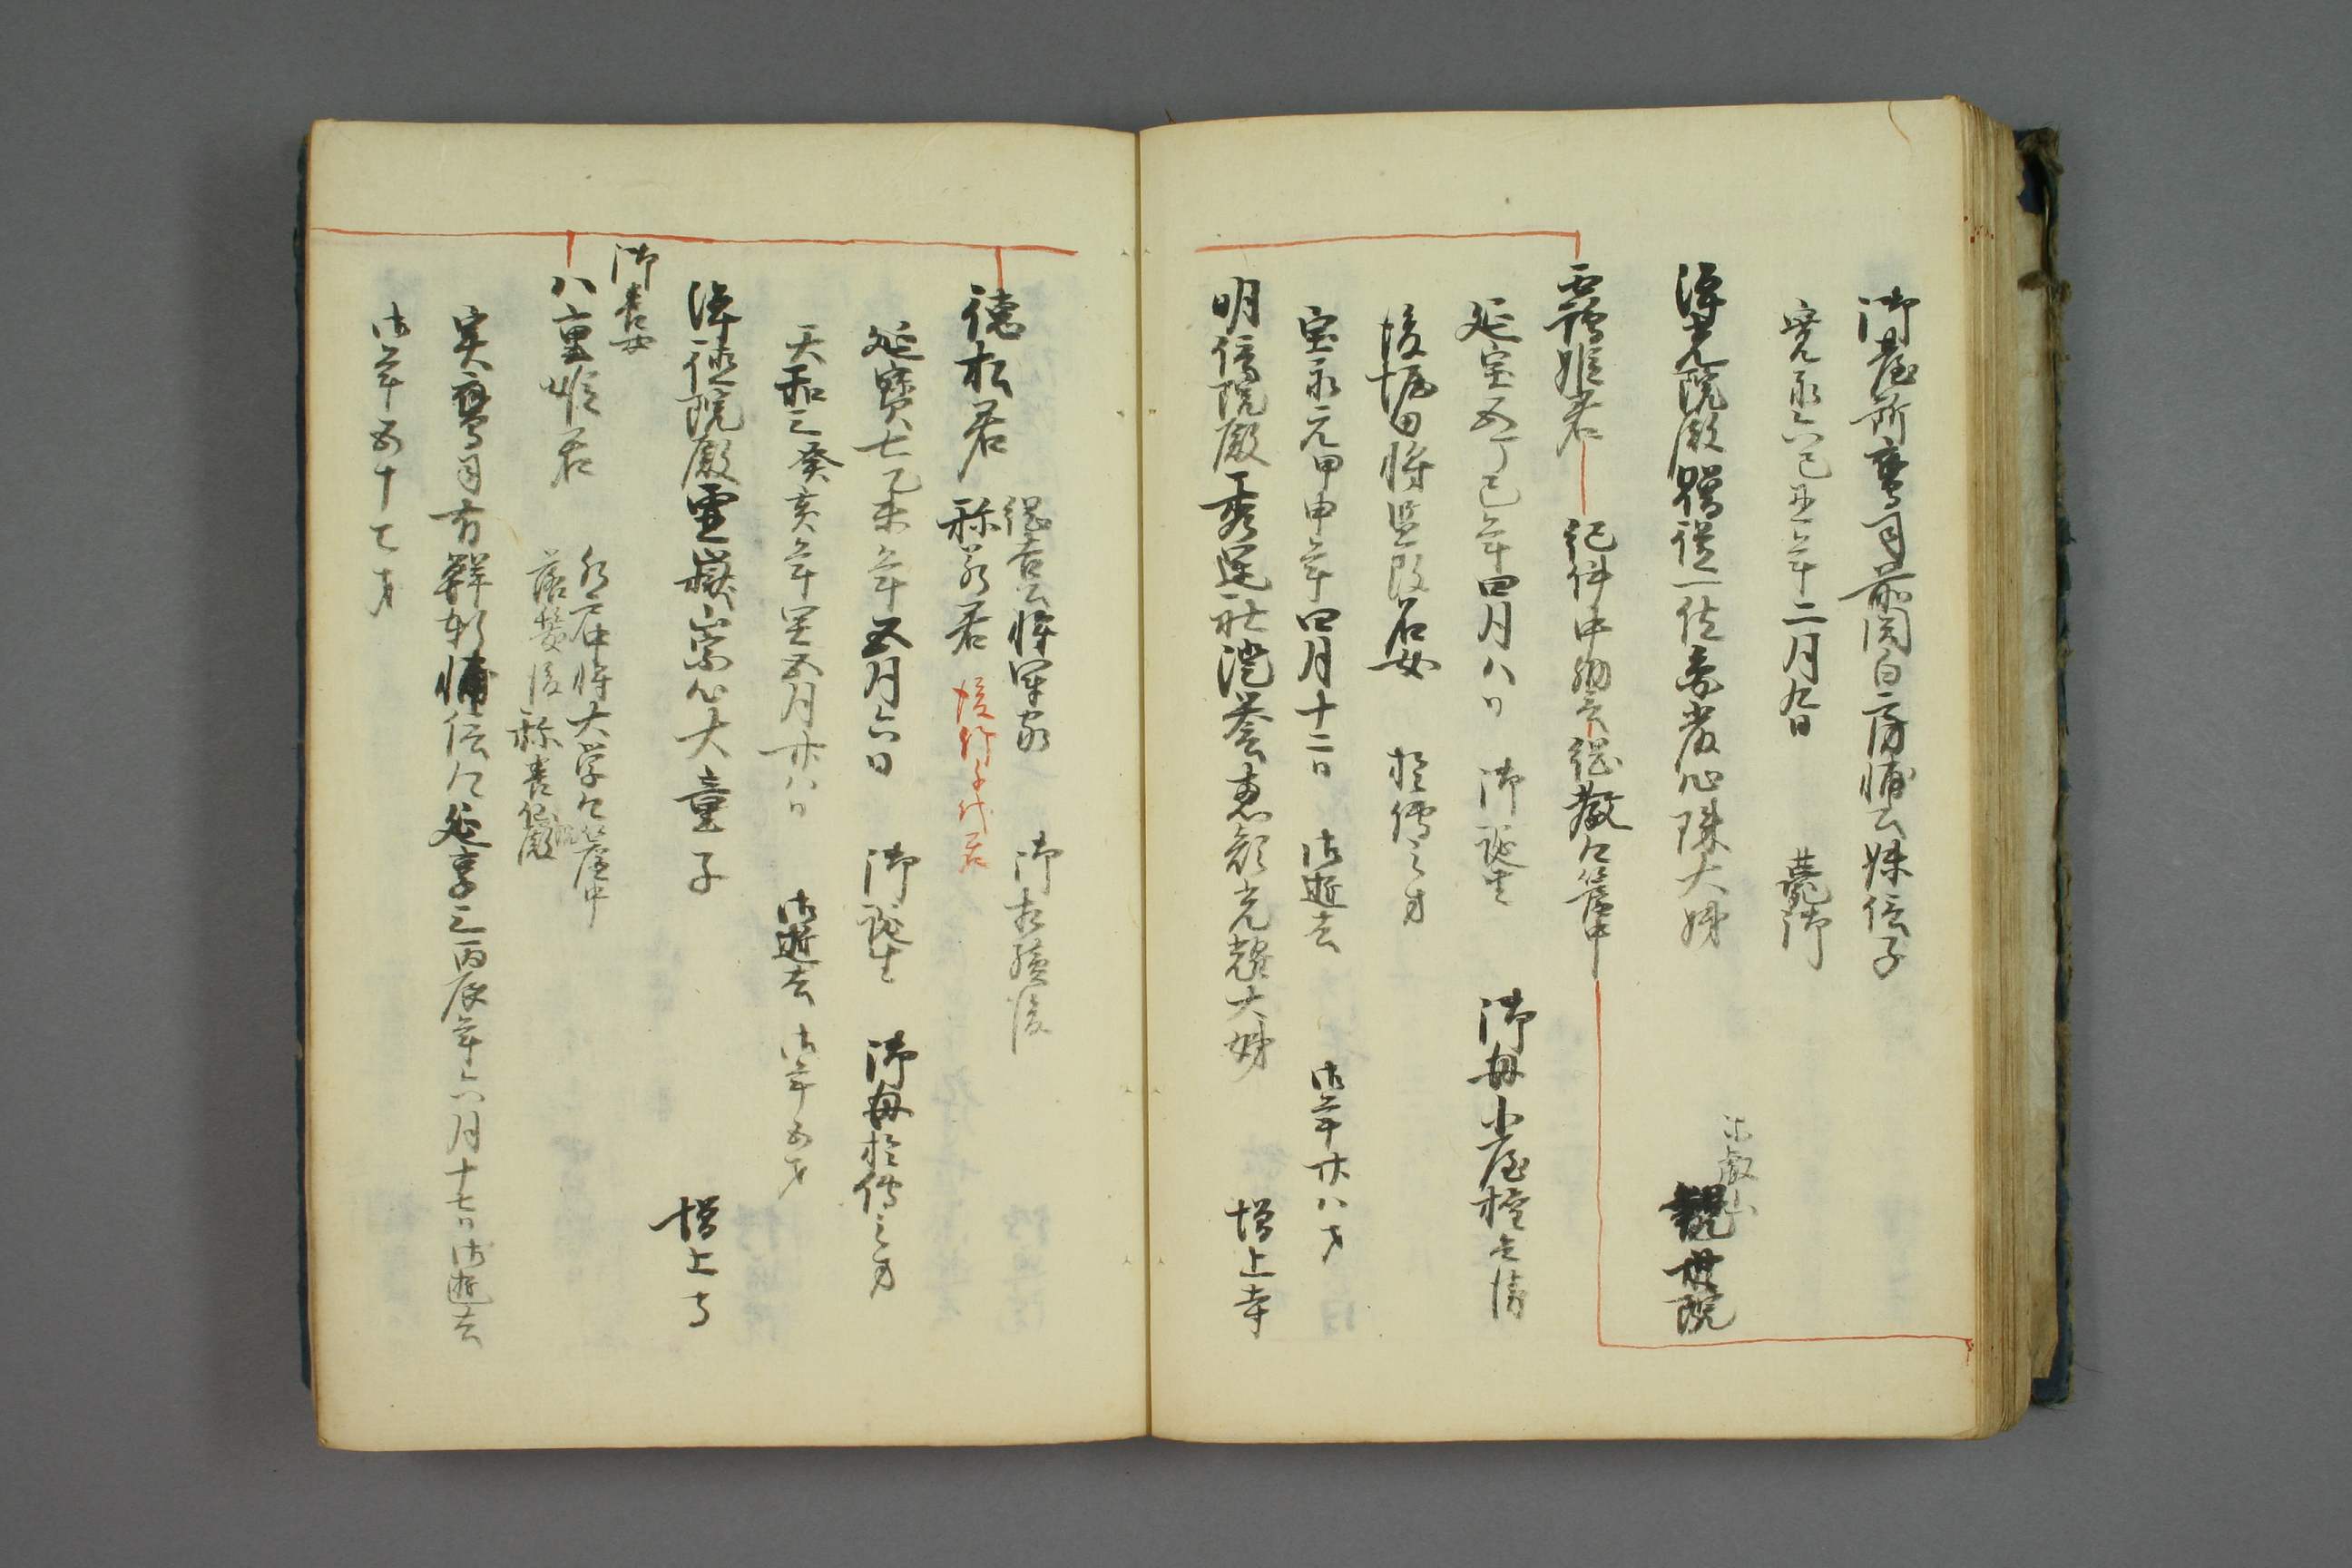 御台所鷹司前関白房輔公妹信子
寛永六己丑年二月九日 薨御
浄光院殿贈従一位 大姉
東叡山
観世院
鶴姫君 紀伊中納言綱教公簾中
延宝五丁巳年四月八日 御誕生 御母小屋権兵衛
後堀田将監改名女 於傳之方
宝永元甲申年四月十二日 御逝去 御年廿八才
明信院殿 澄誉恵顔光耀大姉 増上寺
綱吉公将軍家 御相續後
徳松君 称若君 後竹千代君
延寶七己未年五月六日 御誕生 御母於傳之方
天和三癸亥年閏五月廿八日 御逝去 御年五才
浄徳院殿霊嶽崇心大童子 増上寺
御養女
八重姫君 水戸中将大学公簾中
落髪後称養仙院殿
実鷹司右 輔信公延享三丙辰年六月十七日御逝去
御年五十七才